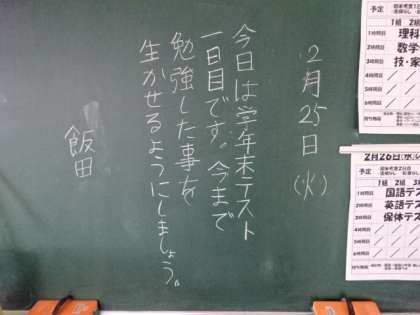 2月25日(火)
今日は学年末テスト
一日目です。今まで
勉強した事を
生かせるようにしましょう。
飯田
予定
1組 2組
1時間目 理科
2時間目 数学
3時間目 技・家
4時間目
5時間目
6時間目
2月26日(水)
予定
1組 2組 3組
1時間目 国語テス
2時間目 英語テス
3時間目 保体テス
4時間目
5時間目
6時間目